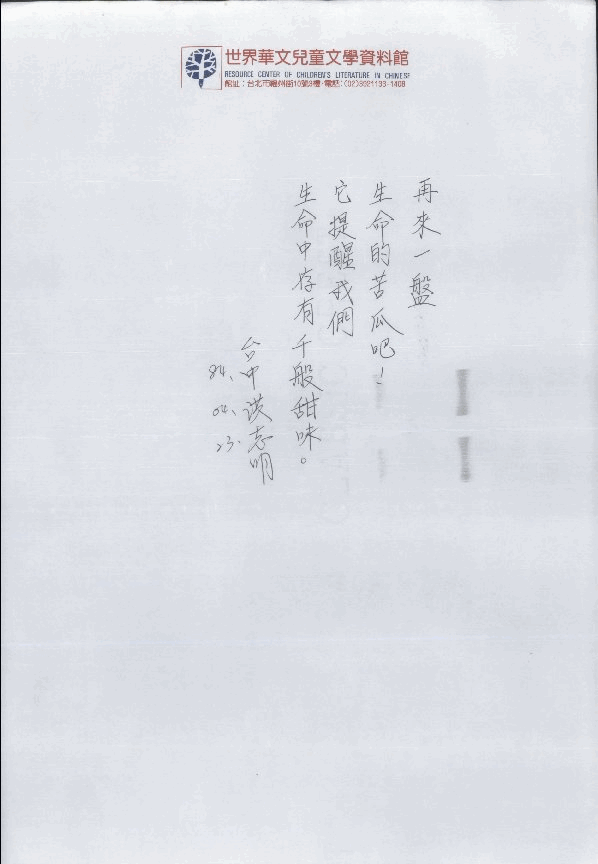 世界華文兒童文學資料館
RESOURCE CENTER OF CHILDREN'S LITERATURE IN CHINESE
館址：台北市福州街10號8樓・電話：(02)3921133-1408
再來一盤
生命的苦瓜吧！
它提醒我們
生命中存有千般甜味。
台中 洪志明
84、04、23.